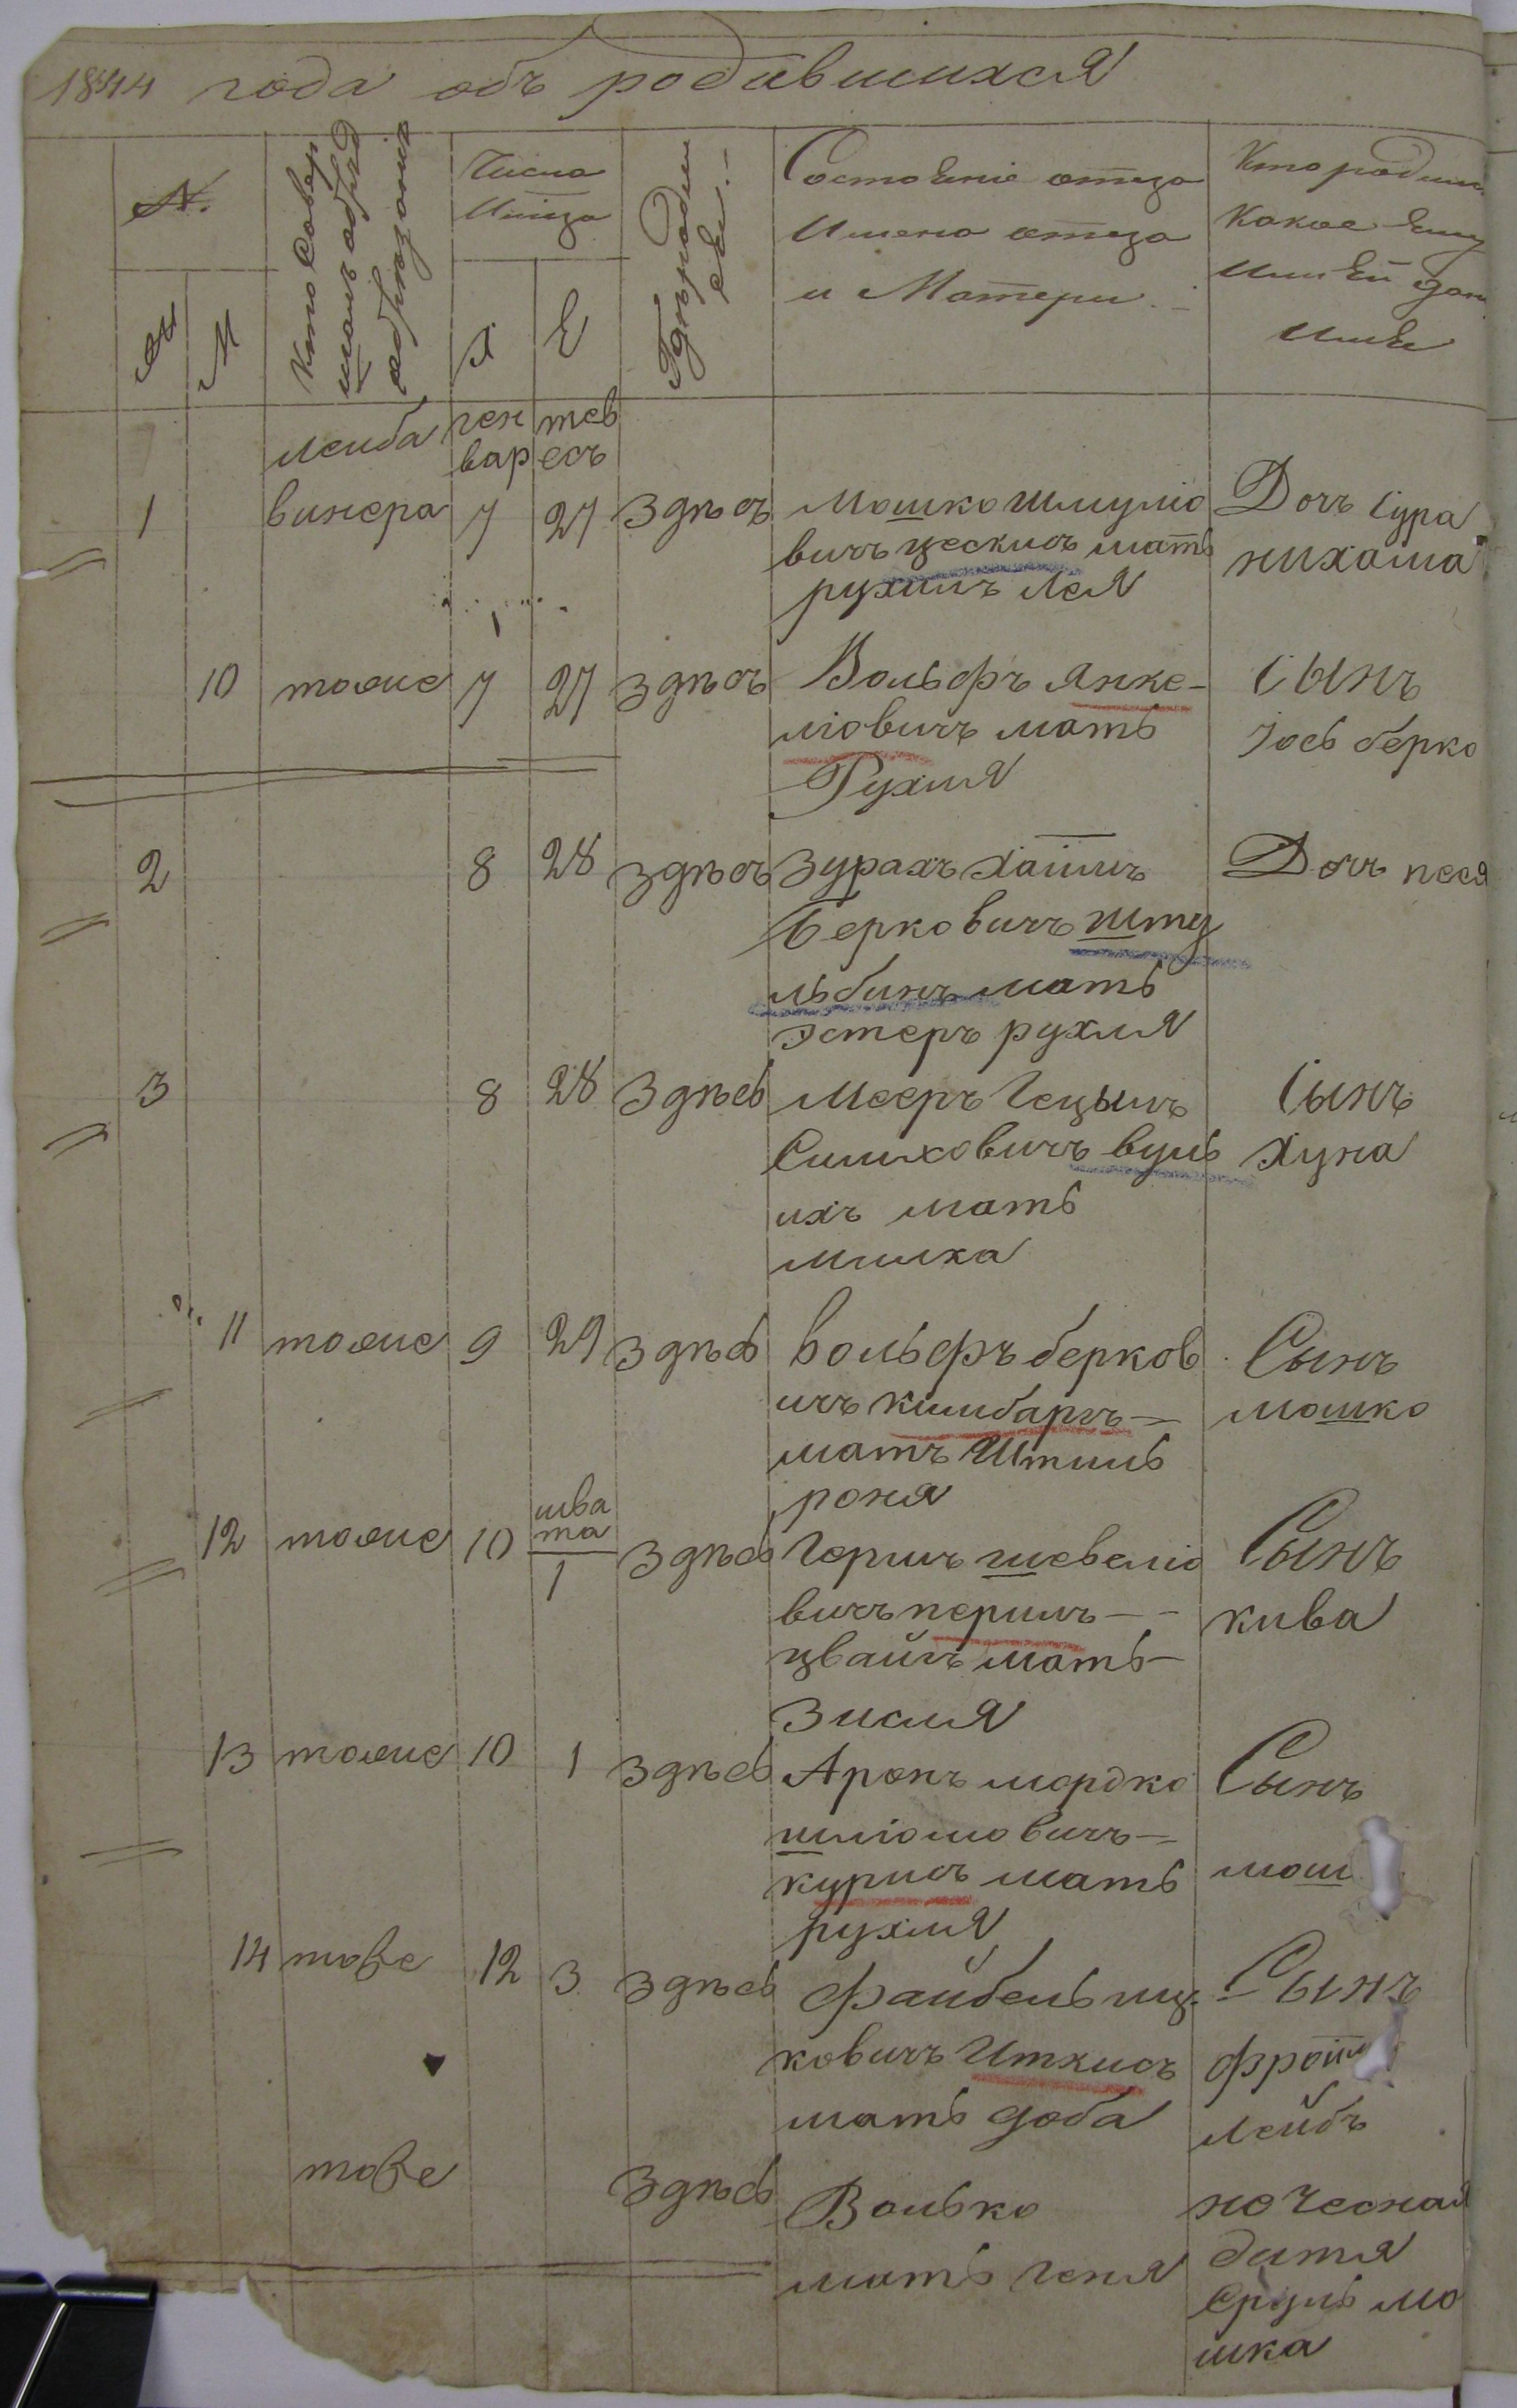 1844 года объ родившихся
№.
Ж
М
Кто Совер
шалъ обряд
обрѣзанія
Числа
Мѣсяца
Х
Е
Гдѣ родил
ся.
Состоѣніе отца
Имена отца
и Матери
Кто родил
Какое Ему
или Ей дан
имя
лейба
ген
вар
тев
есъ
1 винера 7 27 Здѣсь Мошко Шмуліо
вичъ цескисъ мать
рухимъ лея
Дочь Сура
нихама
10 тоже 7 27 здѣсь Вольфъ Янке-
ліовичъ мать
Рухля
Сынъ
Іось берко
2 8 28 здѣсь Зурахъ Хаимъ
Берковичъ шту
льбинъ мать
эстеръ рухля
Дочь песя
3 8 28 Здѣсь Мееръ Гецыль
Симховичъ вуль
ихъ мать
милка
Сынъ
Хуна
11 тоже 9 29 Здѣсь Вольфъ берков
ичъ кимбаргъ
мать Итыль
роня
Сынъ
мошко
12 тоже 10 шва
та
1 Здѣсь Гершъ шевеліо
вичъ перилъ
цвайгъ мать
Зисля
Сынъ
кива
13 тоже 10 1 Здѣсь Аронъ мордко
шліомовичъ
курисъ мать
рухля
Сынъ
мош
14 тоже 12 3 Здѣсь Файбель иц-
ковичъ Иткисъ
мать доба
Сынъ
фроим
лейбъ
тоже Здѣсь Волько
мать геня
дитя
Сруль мо
шка